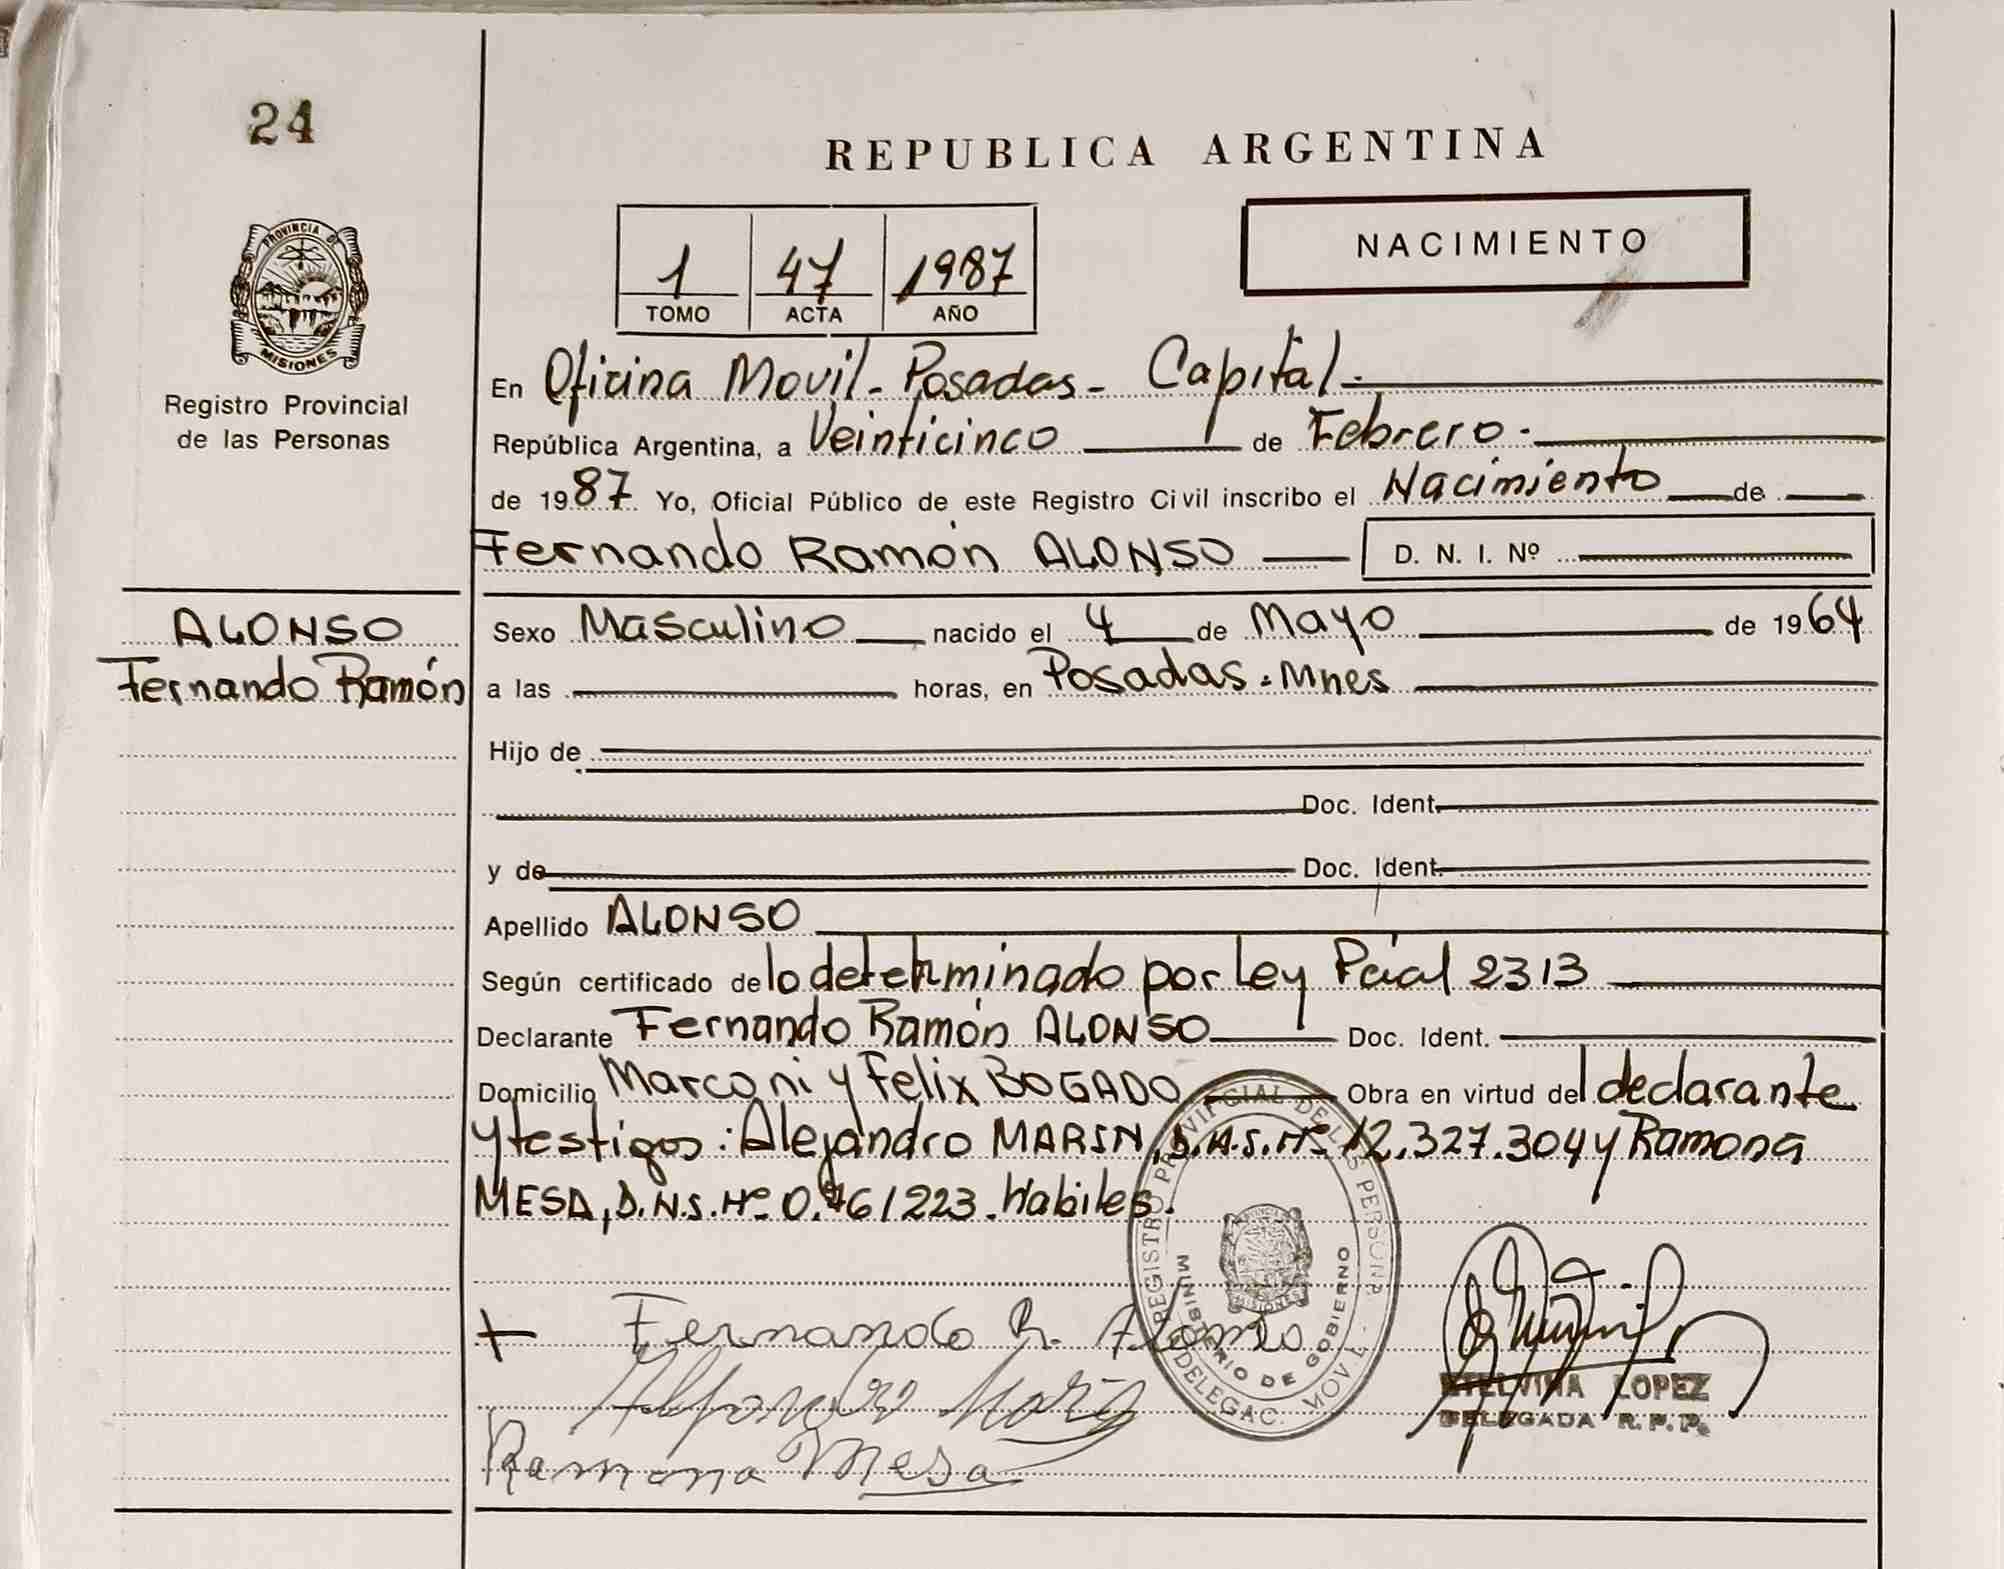 24
REPUBLICA ARGENTINA
PROVINCIA DE
MISIONES
Registro Provincial
de las Personas
1 47 1987
TOMO ACTA AÑO
NACIMIENTO
En Oficina Movil - Posadas - Capital.-
República Argentina, a Veinticinco de Febrero.-
de 1987 Yo, Oficial Público de este Registro Civil inscribo el Nacimiento de
Fernando Ramón ALONSO D. N. I. Nº
ALONSO
Fernando Ramón
Sexo Masculino nacido el 4 de Mayo de 1964
a las horas, en Posadas. Mnes
Hijo de
Doc. Ident.
y de Doc. Ident.
Apellido ALONSO
Según certificado de lo determinado por Ley Pcial 2313
Declarante Fernando Ramón ALONSO Doc. Ident.
Domicilio Marconi y Felix BOGADO Obra en virtud del declarante
y testigos: Alejandro MARIN, D.N.I. Nº 12.327.304 y Ramona
MESA, D.N.I. Nº Habiles.
+ Fernando R. Alonso
Ramona Mesa
REGISTRO PROVINCIAL DE LAS PERSONAS
MINISTERIO DE GOBIERNO
DELEGAC. MOVIL
MISIONES
ETELVINA LOPEZ
DELEGADA R.P.P.